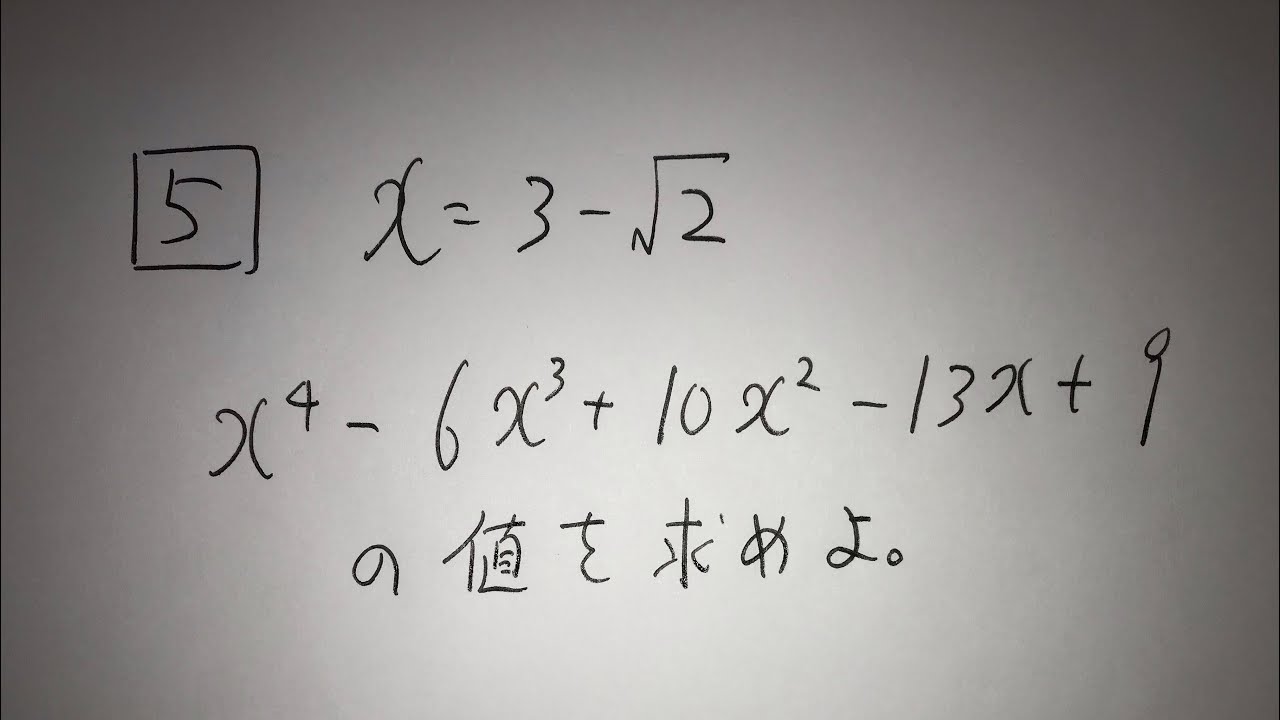 5 x = 3 - √2
x⁴ - 6x³ + 10x² - 13x + 9
の値を求めよ。